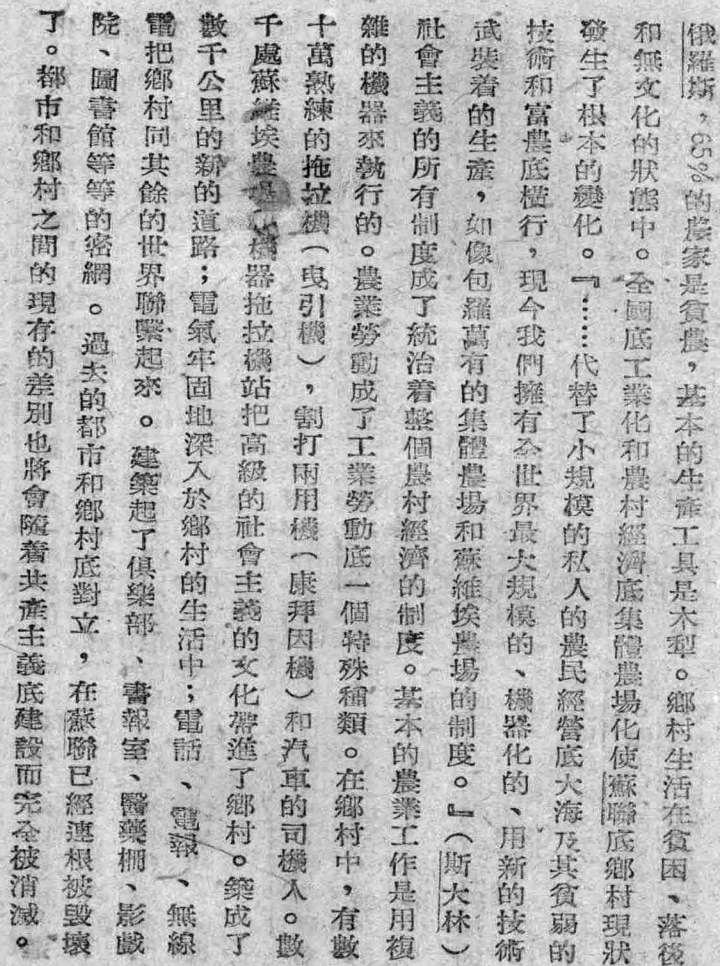 俄羅斯，65%的農家是貧農，基本的生產工具是木犁。鄉村生活在貧困、落後
和無文化的狀態中。全國底工業化和農村經濟底集體農場化使蘇聯底鄉村現狀
發生了根本的變化。『……代替了小規模的私人的農民經營底大海及其貧弱的
技術和富農底橫行，現今我們擁有全世界最大規模的、機器化的、用新的技術
武裝着的生產，如像包羅萬有的集體農場和蘇維埃農場的制度。』（斯大林）
社會主義的所有制度成了統治着整個農村經濟的制度。基本的農業工作是用複
雜的機器來執行的。農業勞動成了工業勞動底一個特殊種類。在鄉村中，有數
十萬熟練的拖拉機（曳引機），割打兩用機（康拜因機）和汽車的司機人。數
千處蘇維埃農場機器拖拉機站把高級的社會主義的文化帶進了鄉村。築成了
數千公里的新的道路；電氣牢固地深入於鄉村的生活中；電話、電報、無線
電把鄉村同其餘的世界聯繫起來。建築起了俱樂部、書報室、醫藥櫉、影戲
院、圖書館等等的密網。過去的都市和鄉村底對立，在蘇聯已經連根被毀壞
了。都市和鄉村之間的現存的差別也將會隨着共產主義底建設而完全被消滅。